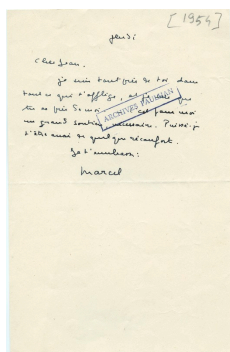 [1954]
jeudi
Cher Jean.
je suis tout près de toi, dans
tout ce qui t'afflige, et je sais que
tu es près de moi. est pour moi
un grand soutien nécessaire. Puissé-je
t'être aussi de quelque réconfort.
Je t'embrasse.
Marcel
ARCHIVES PAULHAN